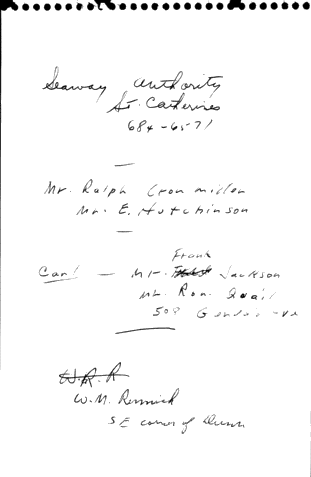 Seaway Authority
St. Catherines
684-6571
Mr. Ralph Cronmiller
Mr. E. Hutchinson
Frank
Carl — Mr. Jackson
Mr. Ron. Quail
508
W.R.R
W.M. Rennick
SE corner of Dunn